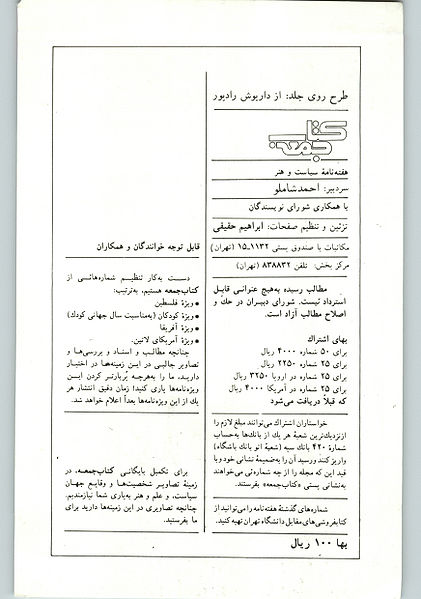 طرح روی جلد: از داریوش رادپور
کتاب جمعه
هفته‌نامهٔ سیاست و هنر
سردبیر: احمد شاملو
با همکاری شورای نویسندگان
تزئین و تنظیم صفحات: ابراهیم حقیقی
مکاتبات با صندوق پستی ۱۱۳۲-۱۵ (تهران)
مرکز پخش: تلفن ۸۳۸۸۳۲ (تهران)
مطالب رسیده به‌هیچ عنوانی قابل
استرداد نیست. شورای دبیران در حک و
اصلاح مطالب آزاد است.
بهای اشتراک
برای ۵۰ شماره ۴۰۰۰ ریال
برای ۲۵ شماره ۲۲۵۰ ریال
برای ۲۵ شماره در اروپا ۳۲۵۰ ریال
برای ۲۵ شماره در آمریکا ۴۰۰۰ ریال
که قبلاً دریافت می‌شود
خواستاران اشتراک می‌توانند مبلغ لازم را
از نزدیک‌ترین شعبهٔ هر یک از بانک‌ها به‌حساب
شمارهٔ ۴۲۰ بانک سپه (شعبهٔ اتو بانک باشگاه)
واریز کنند و رسید آن را به‌ضمیمهٔ نشانی خود و با
قید این که مجله را از چه شماره‌ئی می‌خواهند
به‌نشانی پستی «کتاب‌جمعه» بفرستند.
شماره‌های گذشتهٔ هفته‌نامه را می‌توانید از
کتابفروشی‌های مقابل دانشگاه تهران تهیه کنید.
بها ۱۰۰ ریال
قابل توجه خوانندگان و همکاران
دست به‌کار تنظیم شماره‌هائی از
کتاب‌جمعه هستیم، به‌ترتیب:
• ویژهٔ فلسطین
• ویژهٔ کودکان (به‌مناسبت سال جهانی کودک)
• ویژهٔ آفریقا
• ویژهٔ آمریکای لاتین.
چنانچه مطالب و اسناد و بررسی‌ها و
تصاویر جالبی در این زمینه‌ها در اختیار
دارید، ما را به‌هرچه پُربارتر کردن این
ویژه‌نامه‌ها یاری کنید! زمان دقیق انتشار هر
یک از این ویژه‌نامه‌ها بعداً اعلام خواهد شد.
برای تکمیل بایگانی کتاب‌جمعه، در
زمینهٔ تصاویر شخصیت‌ها و وقایع جهان
سیاست، و علم و هنر به‌یاری شما نیازمندیم.
چنانچه تصاویری در این زمینه‌ها دارید برای
ما بفرستید.